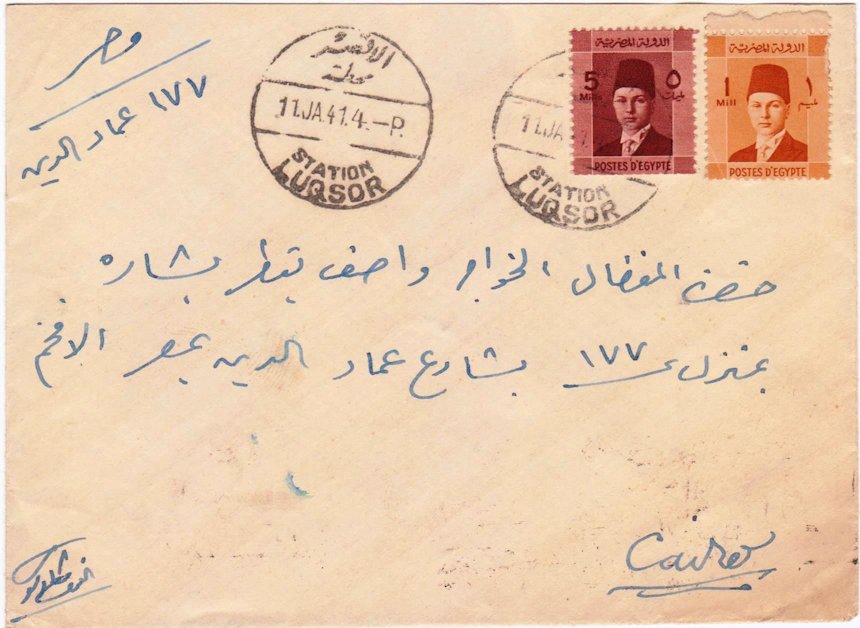 مصر
١٧٧ عماد الدين
الاقصر
محطة
11.JA.41.4.-P.
STATION
LUQSOR
11.JA
STATION
LUQSOR
الدولة المصرية
5 ٥
Mills مليمات
POSTES D'EGYPTE
الدولة المصرية
1 ١
Mill مليم
POSTES D'EGYPTE
حضرة المفضال الخواجه واصف بقطر بشاره
بمنزل ١٧٧ بشارع عماد الدين بمصر الافخم
Cairo